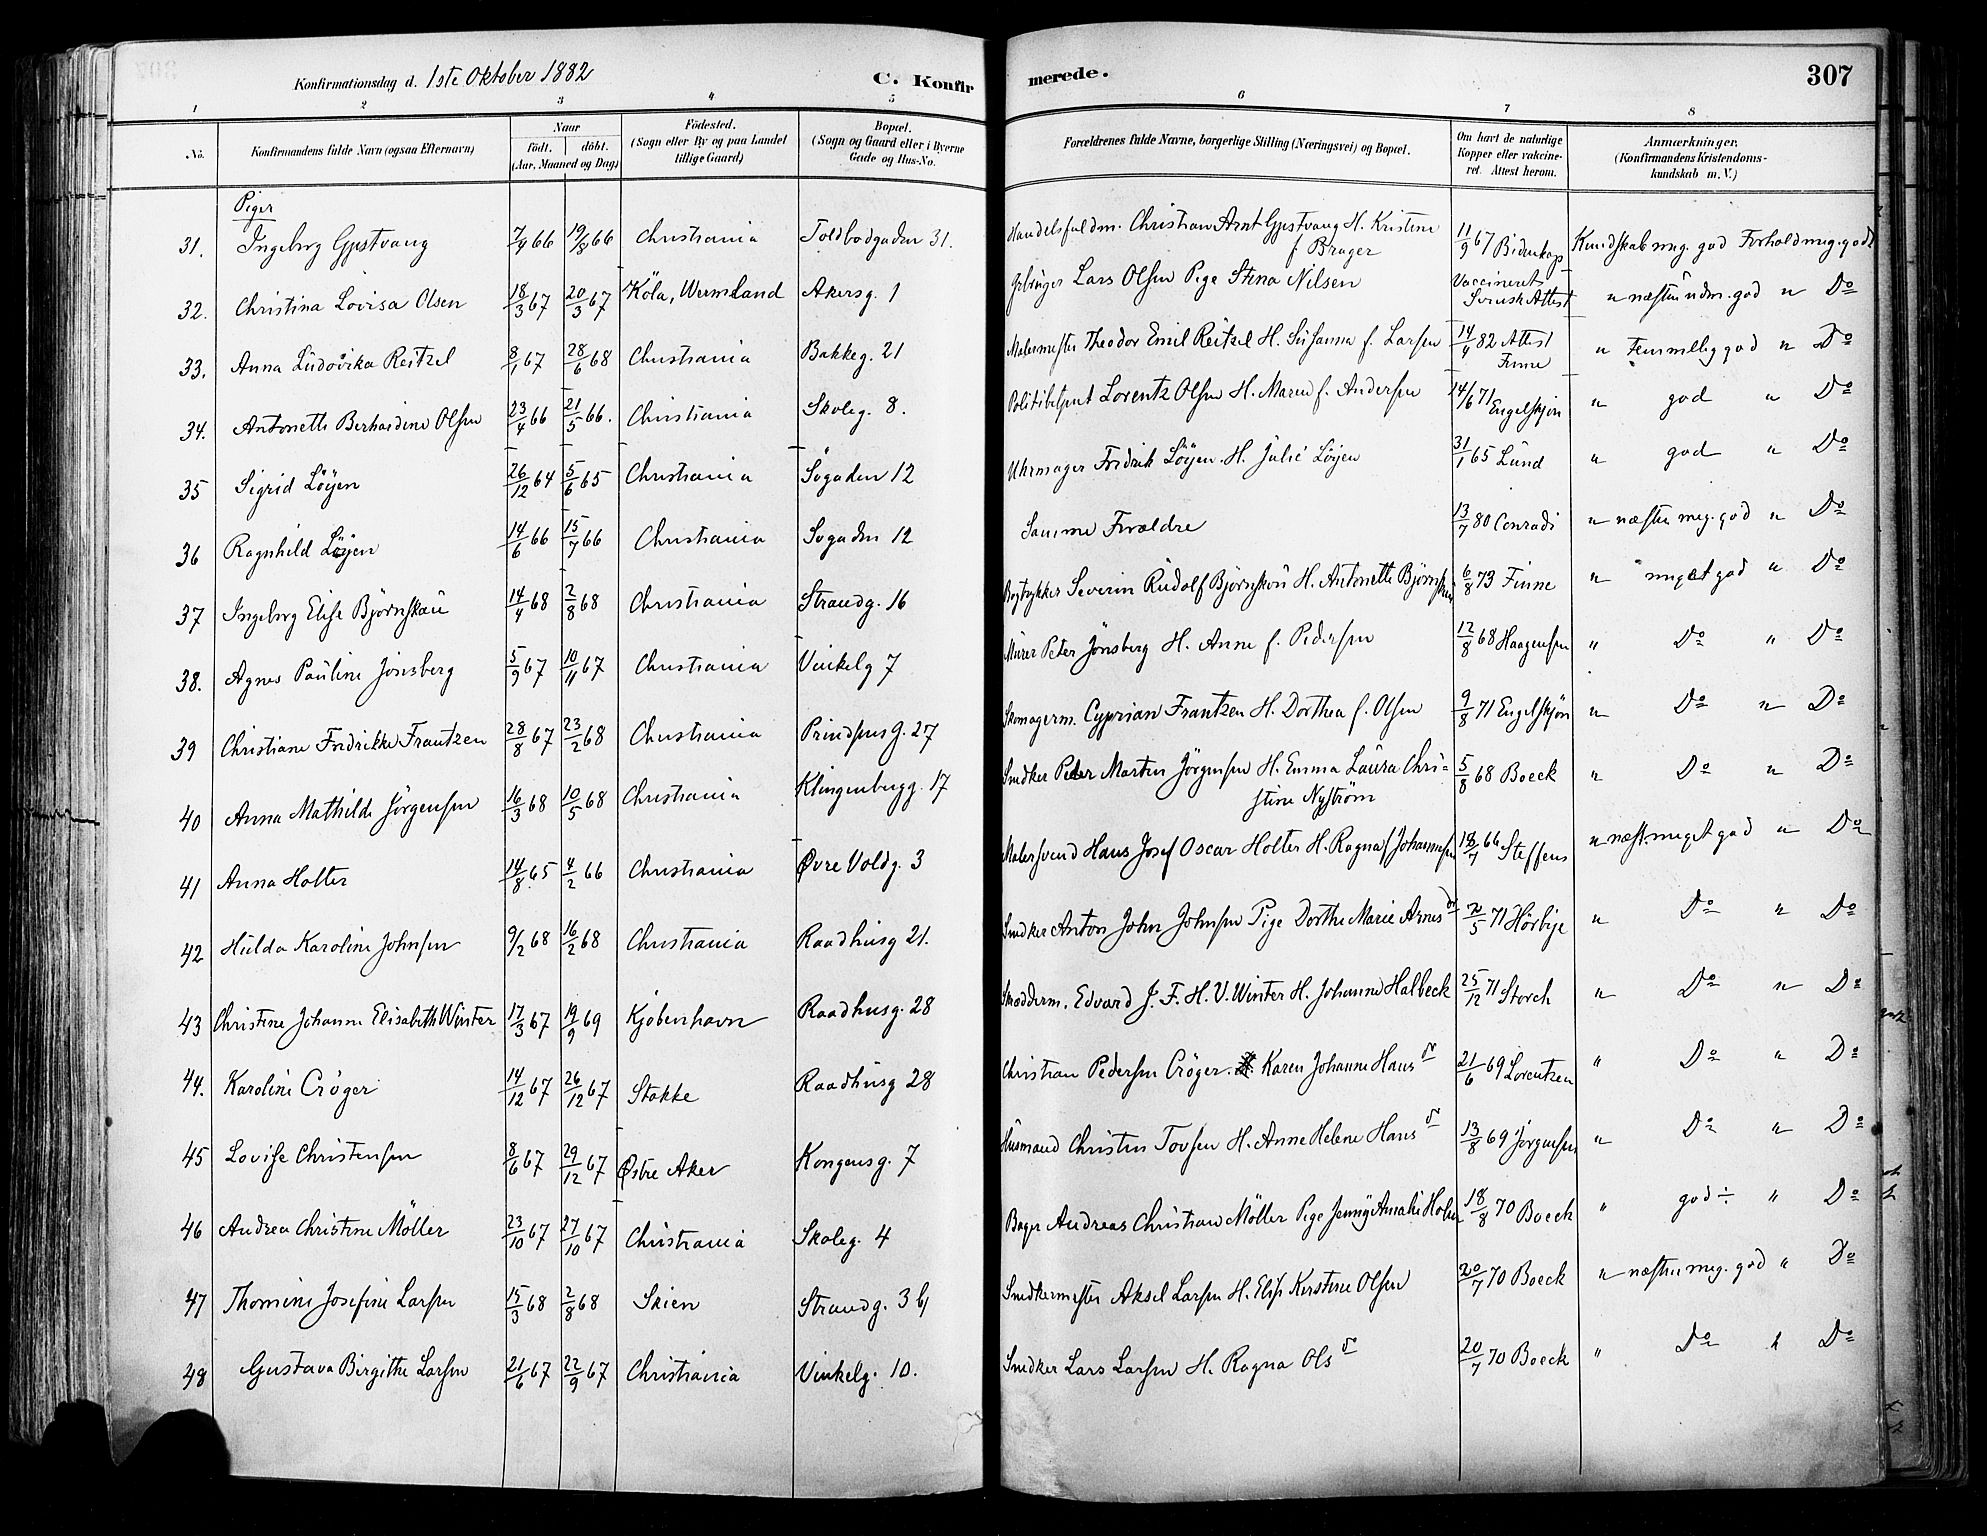 Konfirmationsdag d. 1ste Oktober 1882 C. Konfirmerede. 307
1 2 3 4 5 6 7 8
No. Konfirmandens fulde Navn (ogsaa Efternavn) Naar födt. döbt. (Aar, Maaned og Dag) Födested. (Sogn eller By og paa Landet tillige Gaard) Bopæl. (Sogn og Gaard eller i Byerne Gade og Hus-No. Forældrenes fulde Navne, borgerlige Stilling (Næringsvei) og Bopæl. Om havt de naturlige Kopper eller vakcineret. Attest herom. Anmærkninger. (Konfirmandens Kristendomskundskab m. V.)
Piger
31. Ingeborg Gjestvang 7/4 66 19/8 66 Christiania Toldbodgaden 31. Handelsfuldm. Christian Arnt Gjestvang H. Kristine f Brager 11/9 67 Bidenkap Kundskab meg. god Forhold meg. godt
32. Christina Lovisa Olsen 18/3 67 20/3 67 Köla, Wermland Akersg. 1 Lars Olsen Pige Stina Nilsen Vaccineret Svensk Attest " næsten udm. god " Do
33. Anna Ludovika Reitzel 8/1 67 28/6 68 Christiania Bakkeg. 21 Malermester Theodor Emil Reitzel H. Susanna f. Larsen 14/4 82 Attest Finne " Temmelig god " Do
34. Antonette Berhardine Olsen 23/4 66 21/5 66. Christiania Skoleg. 8. Politibetjent Lorentz Olsen H. Maren f. Andersen 14/6 71 Engelskjøn " god " Do
35 Sigrid Löyen 26/12 64 5/6 65 Christiania Søgaden 12 Uhrmager Fredrik Löyen H. Julie Löyen 31/1 65 Lund " god " Do
36 Ragnhild Löyen 14/6 66 15/7 66 Christiania Søgaden 12 Samme Forældre 13/7 80 Conradi " næsten meg. god " Do
37 Ingeborg Elise Björnskau 14/4 68 2/8 68 Christiania Strandg. 16 Bogtrykker Severin Rudolf Björnskou H. Antonette Björnskou 6/8 73 Finne " meget god " Do
38. Agnes Pauline Jönsberg 5/9 67 10/11 67 Christiania Vinkelg 7 Murer Peter Jönsberg H. Anne f. Pedersen 12/8 68 Haagensen " Do " Do
39 Christiane Fredrikke Frantzen 28/8 67 23/2 68 Christiania Prindsens G. 27 Skomagerm. Cyprian Frantzen H. Dorthea f. Olsen 9/8 71 Engelskjøn " Do " Do
40 Anna Mathilde Jörgensen 16/3 68 10/5 68 Christiania Klingenbergg. 17 Snedker Peter Martin Jörgensen H. Emma Laura Christine Nyström 5/8 68 Boeck " Do " Do
41 Anna Holter 14/8 65 4/2 66 Christiania Øvre Voldg. 3 Malersvend Hans Josef Oscar Holter H. Ragna f Johannesen 18/7 66 Steffens " næst. meget god " Do
42 Hulda Karoline Johnsen 9/2 68 16/2 68 Christiania Raadhusg 21. Snedker Anton John Johnsen Pige Dorthe Marie Arnesdr 2/5 71 Hörbye " Do " Do
43 Christine Johanne Elisabeth Winter 17/3 67 19/9 69 Kjøbenhavn Raadhusg. 28 Skrædderm. Edvard J. F. H. V. Winter H. Johanne Halbeck 25/12 71 Storch " Do " Do
44. Karoline Cröger 14/12 67 26/12 67 Stokke Raadhusg 28 Christian Pedersen Cröger. Karen Johanne Hansdr 21/6 69 Lorentzen " Do " Do
45 Lovise Christensen 8/6 67 29/12 67 Østre Aker Kongensg. 7 Husmand Christen Tovsen H. Anne Helene Hansdr 13/8 69 Jörgensen " Do " Do
46 Andrea Christine Möller 23/10 67 27/10 67 Christiania Skoleg. 4 Bager Andreas Christian Möller Pige Jenny Amalie Holm 18/8 70 Boeck " god ÷ " Do
47 Thomine Josefine Larsen 15/3 68 2/8 68 Skien Strandg. 3 b Snedkermester Aksel Larsen H. Elise Kirstine Olsen 20/7 70 Boeck " næsten meg. god " Do
48 Gustava Birgithe Larsen 21/6 67 22/9 67 Christiania Vinkelg. 10. Snedker Lars Larsen H. Ragna Olsdr 20/7 70 Boeck " Do " Do